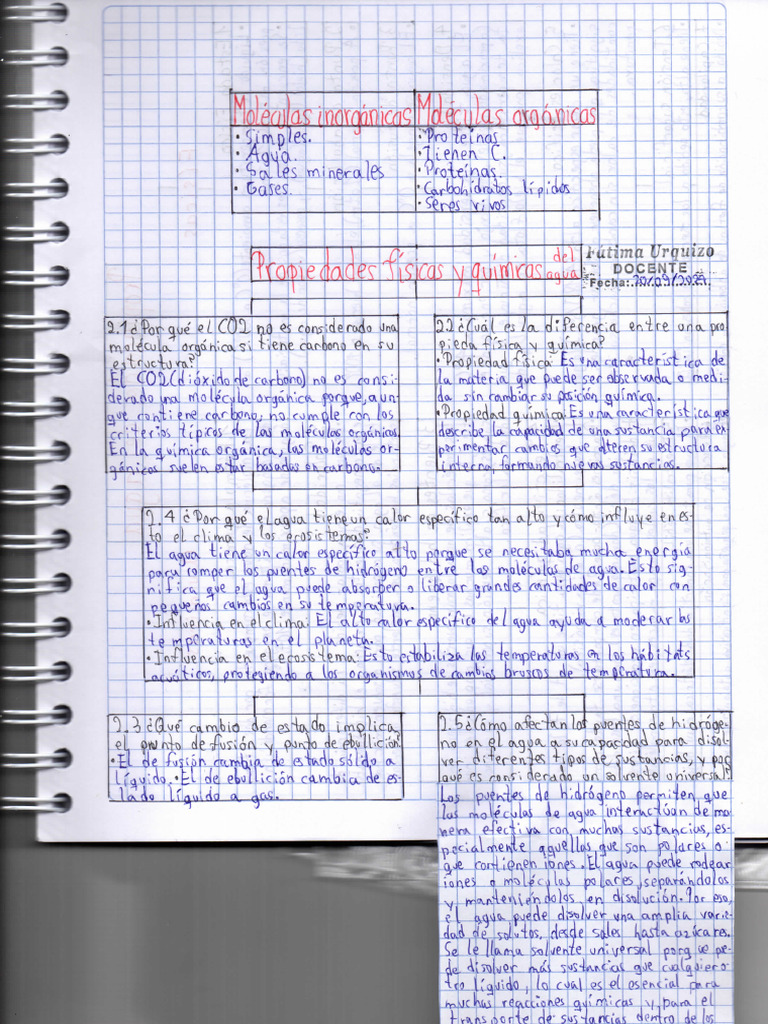 Moléculas inorgánicas Moléculas orgánicas
• Simples.
• Agua.
• Sales minerales
• Gases.
• Proteínas
• Tienen C.
• Proteínas.
• Carbohidratos lípidos
• Seres vivos
Propiedades físicas y químicas del agua
Fátima Urquizo
DOCENTE
Fecha:
2.1 ¿Por qué el CO2 no es considerado una
molécula orgánica si tiene carbono en su
estructura?
El CO2 (dióxido de carbono) no es consi-
derado una molécula orgánica porque, aun-
que contiene carbono, no cumple con los
criterios típicos de las moléculas orgánicas.
En la química orgánica, las moléculas or-
gánicas suelen estar basadas en carbono.
2.2 ¿Cuál es la diferencia entre una pro
pieda física y química?
• Propiedad física: Es una característica de
la materia que puede ser observada o medi-
da sin cambiar su posición química.
• Propiedad química: Es una característica que
describe la capacidad de una sustancia para ex
perimentar cambios que alteren su estructura
interna, formando nuevas sustancias.
2.4 ¿Por qué el agua tiene un calor específico tan alto y cómo influye en es
to el clima y los ecosistemas?
El agua tiene un calor específico alto porque se necesitaba mucha energía
para romper los puentes de hidrógeno entre las moléculas de agua. Esto sig-
nifica que el agua puede absorber o liberar grandes cantidades de calor con
pequeños cambios en su temperatura.
• Influencia en el clima: El alto calor específico del agua ayuda a moderar las
temperaturas en el planeta.
• Influencia en el ecosistema: Esto estabiliza las temperaturas en los hábitats
acuáticos, protegiendo a los organismos de cambios bruscos de temperatura.
2.3 ¿Qué cambio de estado implica
el punto de fusión y punto de ebullición?
• El de fusión cambia de estado sólido a
líquido. • El de ebullición cambia de es-
tado líquido a gas.
2.5 ¿Cómo afectan los puentes de hidróge-
no en el agua a su capacidad para disol
ver diferentes tipos de sustancias, y por
qué es considerado un solvente universal?
Los puentes de hidrógeno permiten que
las moléculas de agua interactúan de ma
nera efectiva con muchas sustancias, es-
pecialmente aquellas que son polares o
que contienen iones. El agua puede rodear
iones o moléculas polares, separándolos
y manteniéndolos en disolución. Por eso,
el agua puede disolver una amplia varie-
dad de solutos, desde sales hasta azúcares.
Se le llama solvente universal porque pue-
de disolver más sustancias que cualquier o
tro líquido, lo cual es el esencial para
muchas reacciones químicas y para el
transporte de sustancias dentro de los